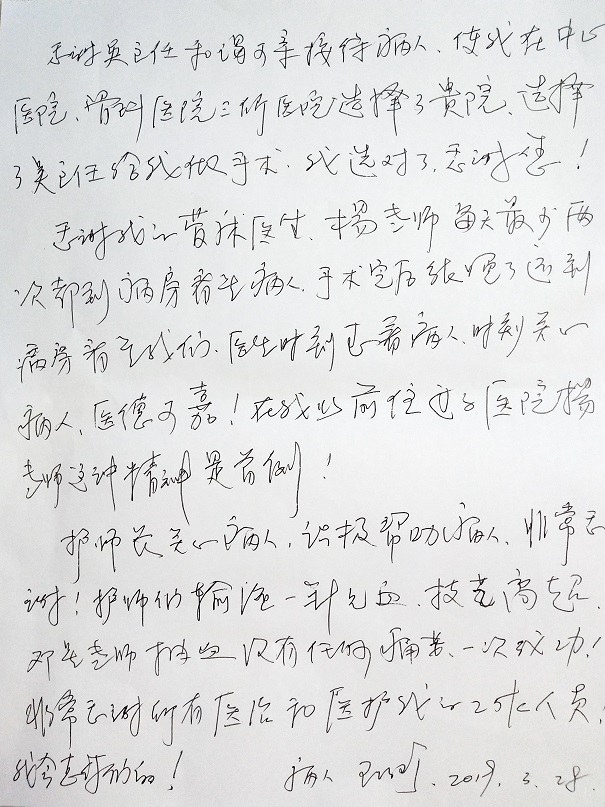 感谢吴主任和谒可亲接待病人、使我在中心
医院、骨科医院三所医院选择了贵院、选择
了吴主任给我做手术、我选对了,感谢您!
感谢我的管床医生、杨老师每天最少两
次都到病房看望病人、手术完后很晚了还到
病房看望我们、医生时刻想着病人、时刻关心
病人、医德可嘉!在我以前住过的医院杨
老师这种精神是首例!
护师长关心病人、积极帮助病人、非常感
谢!护师们输液一针见血、技艺高超、
邓老师抽血没有任何痛苦、一次成功!
非常感谢所有医治和医护我的工作人员,
我会想你们的!
病人 2019.3.28.